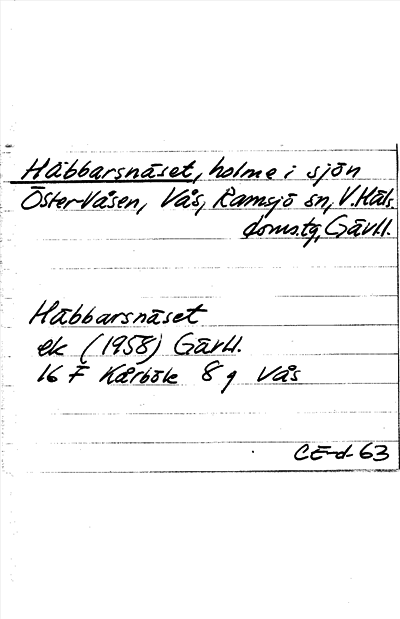 Häbbarsnäset, holme i sjön
Öster-Våsen, Vås, Ramsjö sn, V. Häls.
doms.tg, Gävl.
Häbbarsnäset
ek (1958) Gävl.
16 F Kårböle 8 g Vås
CE-d-63